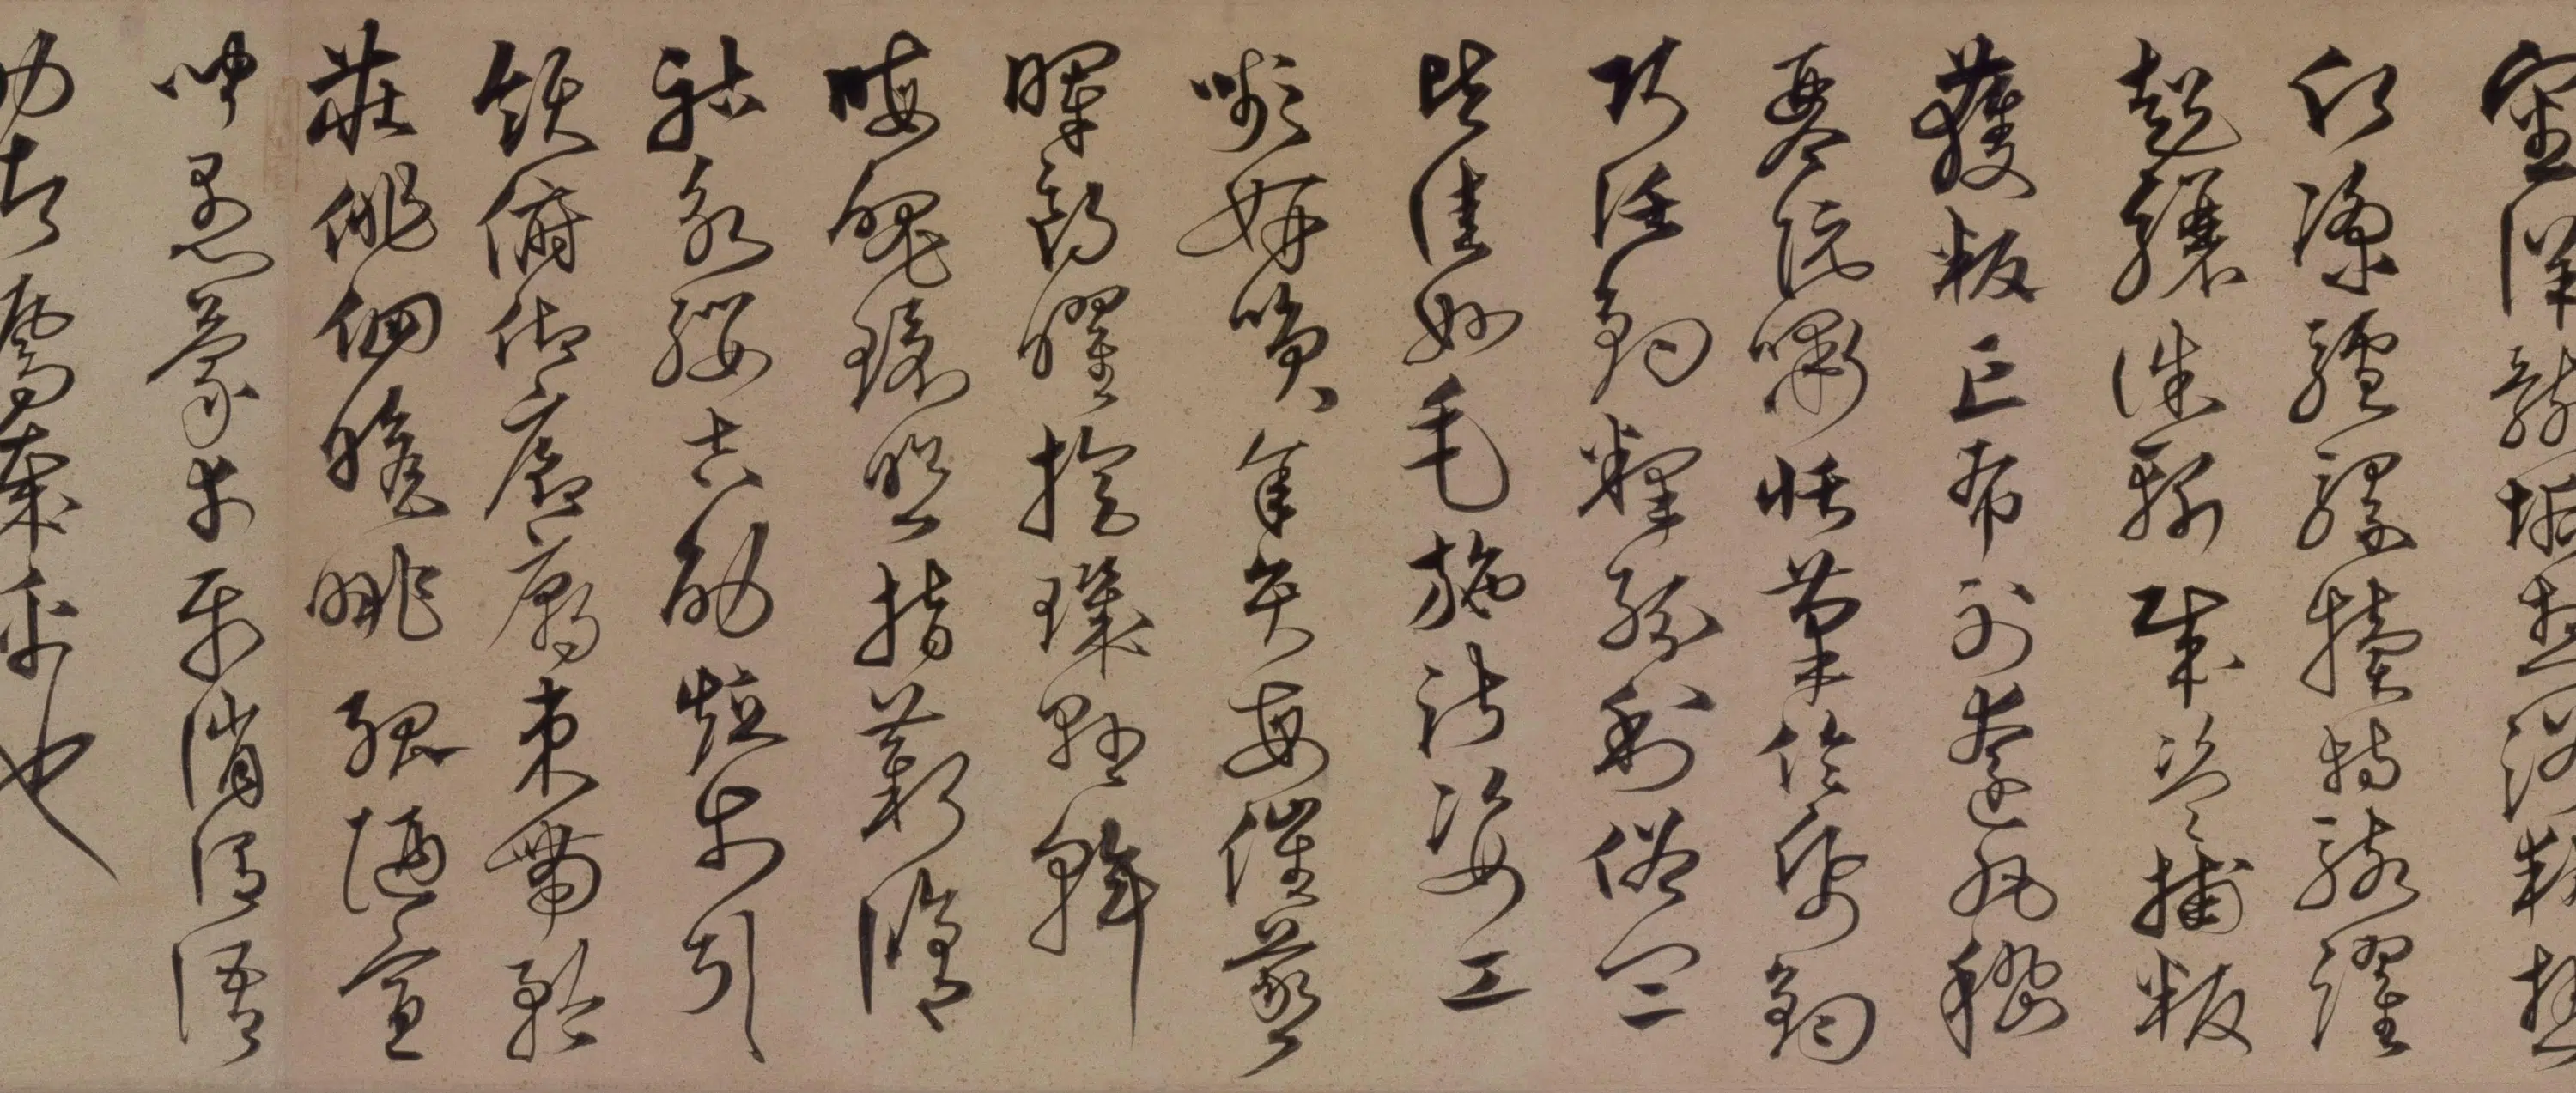 審詳骸垢想浴執熱
願涼驢騾犢特駭躍
超驤誅斬賊盜捕叛
獲叛亡布射遼丸嵇
琴阮嘯恬筆倫紙鈞
巧任釣釋紛利俗並
皆佳妙毛施淑姿工
顰妍笑年矢每催羲
暉朗曜旋璣懸斡
晦魄環照指薪修
祜永綏吉劭矩步引
領俯仰廊廟束帶矜
莊徘徊瞻眺孤陋寡
聞愚蒙等乎誚謂語
助者焉哉乎也